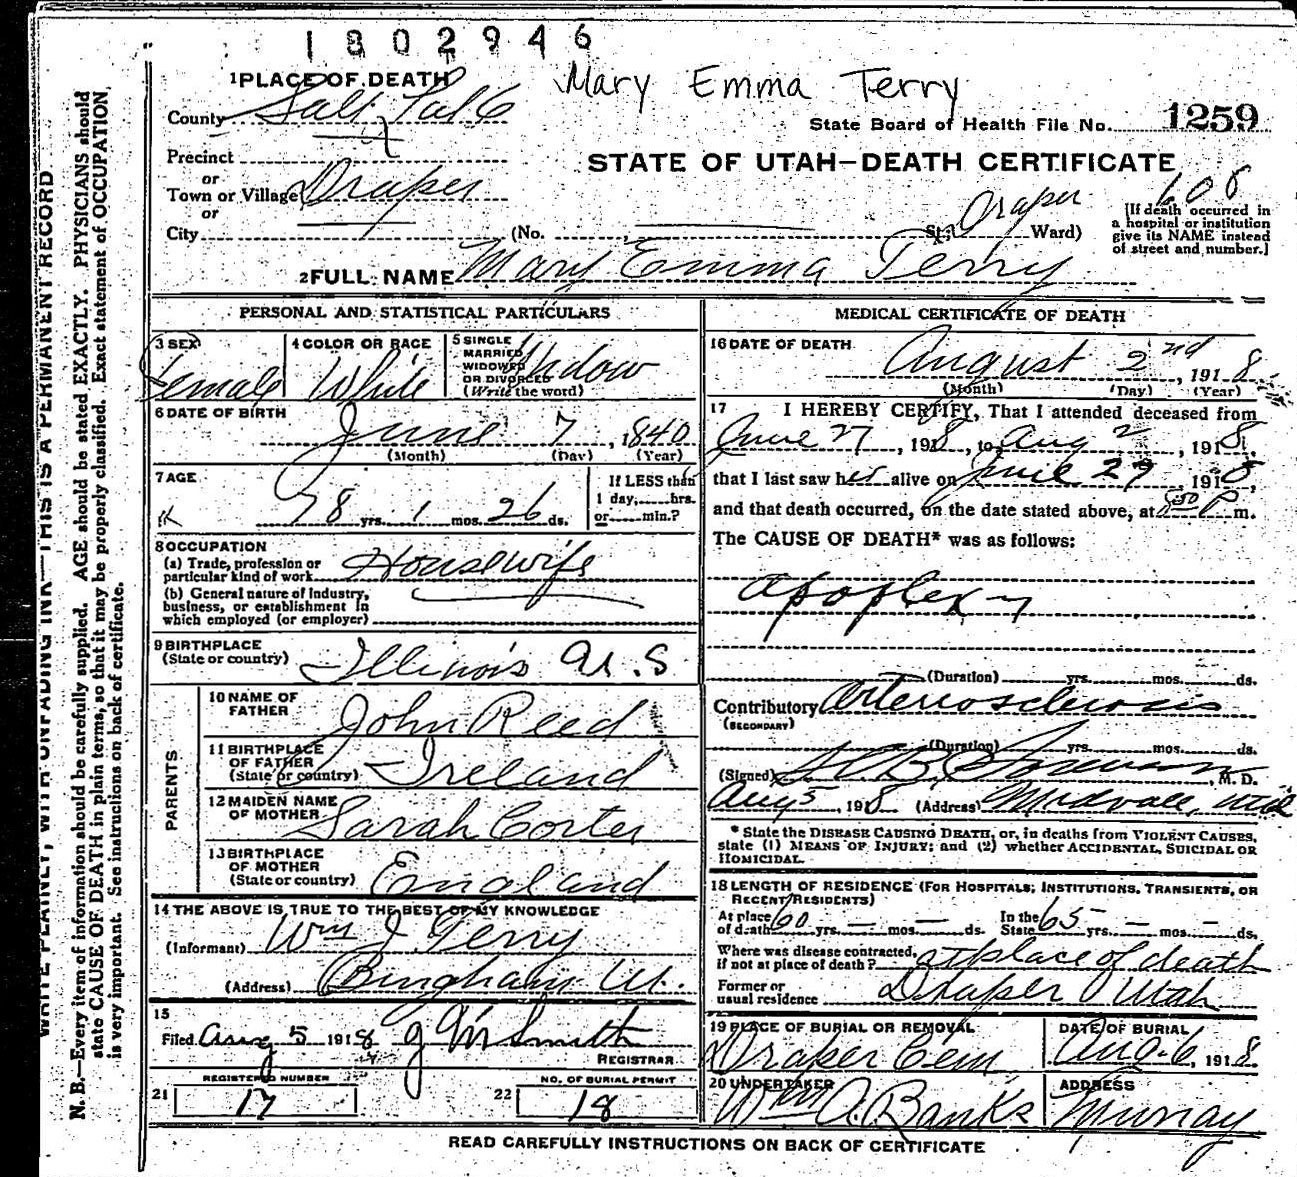 1802946
Mary Emma Terry
1 PLACE OF DEATH
County Salt Lake
State Board of Health File No. 1259
Precinct
or
STATE OF UTAH—DEATH CERTIFICATE
Town or Village Draper
or
City (No. St.; Draper Ward)
608
[If death occurred in
a hospital or institution
give its NAME instead
of street and number.]
2 FULL NAME Mary Emma Terry
PERSONAL AND STATISTICAL PARTICULARS
3 SEX Female
4 COLOR OR RACE White
5 SINGLE
MARRIED
WIDOWED
OR DIVORCED
(Write the word)
Widow
6 DATE OF BIRTH
June 7, 1840
(Month) (Day) (Year)
7 AGE
78 yrs. 1 mos. 26 ds.
If LESS than
1 day, hrs.
or min.?
8 OCCUPATION
(a) Trade, profession or
particular kind of work Housewife
(b) General nature of Industry,
business, or establishment in
which employed (or employer)
9 BIRTHPLACE
(State or country) Illinois U.S
PARENTS
10 NAME OF
FATHER John Reed
11 BIRTHPLACE
OF FATHER
(State or country) Ireland
12 MAIDEN NAME
OF MOTHER Sarah Corter
13 BIRTHPLACE
OF MOTHER
(State or country) England
14 THE ABOVE IS TRUE TO THE BEST OF MY KNOWLEDGE
(Informant) Wm J. Terry
(Address) Bingham Ut.
15
Filed Aug 5 1918 J M Smith
REGISTRAR
REGISTERED NUMBER
21 17
NO. OF BURIAL PERMIT
22 18
MEDICAL CERTIFICATE OF DEATH
16 DATE OF DEATH
August 2nd, 1918
(Month) (Day) (Year)
17 I HEREBY CERTIFY, That I attended deceased from
June 27, 1918, to Aug 2, 1918,
that I last saw her alive on June 29, 1918,
and that death occurred, on the date stated above, at P m.
The CAUSE OF DEATH* was as follows:
apoplexy
(Duration) yrs. mos. ds.
Contributory Arteriosclerosis
(SECONDARY)
(Duration) yrs. mos. ds.
(Signed) M. D.
Aug 5, 1918 (Address) Midvale, Utah
* State the DISEASE CAUSING DEATH, or, in deaths from VIOLENT CAUSES,
state (1) MEANS OF INJURY; and (2) whether ACCIDENTAL, SUICIDAL OR
HOMICIDAL.
18 LENGTH OF RESIDENCE (FOR HOSPITALS, INSTITUTIONS, TRANSIENTS, OR
RECENT RESIDENTS)
At place
of death 60 yrs. — mos. — ds. In the
State 65 yrs. — mos. — ds.
Where was disease contracted,
if not at place of death? at place of death
Former or
usual residence Draper Utah
19 PLACE OF BURIAL OR REMOVAL
Draper Cem
DATE OF BURIAL
Aug. 6, 1918
20 UNDERTAKER
Wm A. Banks
ADDRESS
Murray
READ CAREFULLY INSTRUCTIONS ON BACK OF CERTIFICATE
WRITE PLAINLY, WITH UNFADING INK—THIS IS A PERMANENT RECORD
N. B.—Every item of information should be carefully supplied. AGE should be stated EXACTLY. PHYSICIANS should
state CAUSE OF DEATH in plain terms, so that it may be properly classified. Exact statement of OCCUPATION
is very important. See instructions on back of certificate.